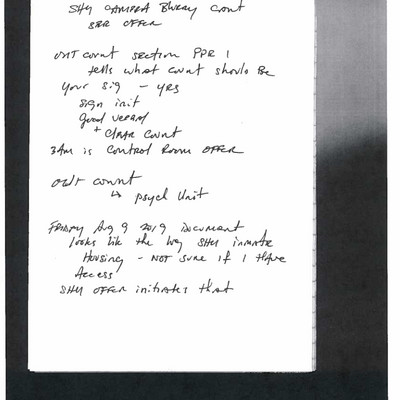 SHU CAMERA Blurry count
SRR OFFER
OUT count section PPR 1
tells what count should Be
your sig - yes
sign init
Good verbal
+ clear count
3Am is control Room OFFER
out count
↳ psych Unit
FRIDAY Aug 9 2019 Document
looks like the log SHU inmate
Housing - NOT sure if I have
Access
SHU OFFER initiates that